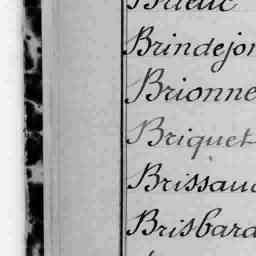 Brindejon
Brionne
Briquet
Brissaud
Brisbard